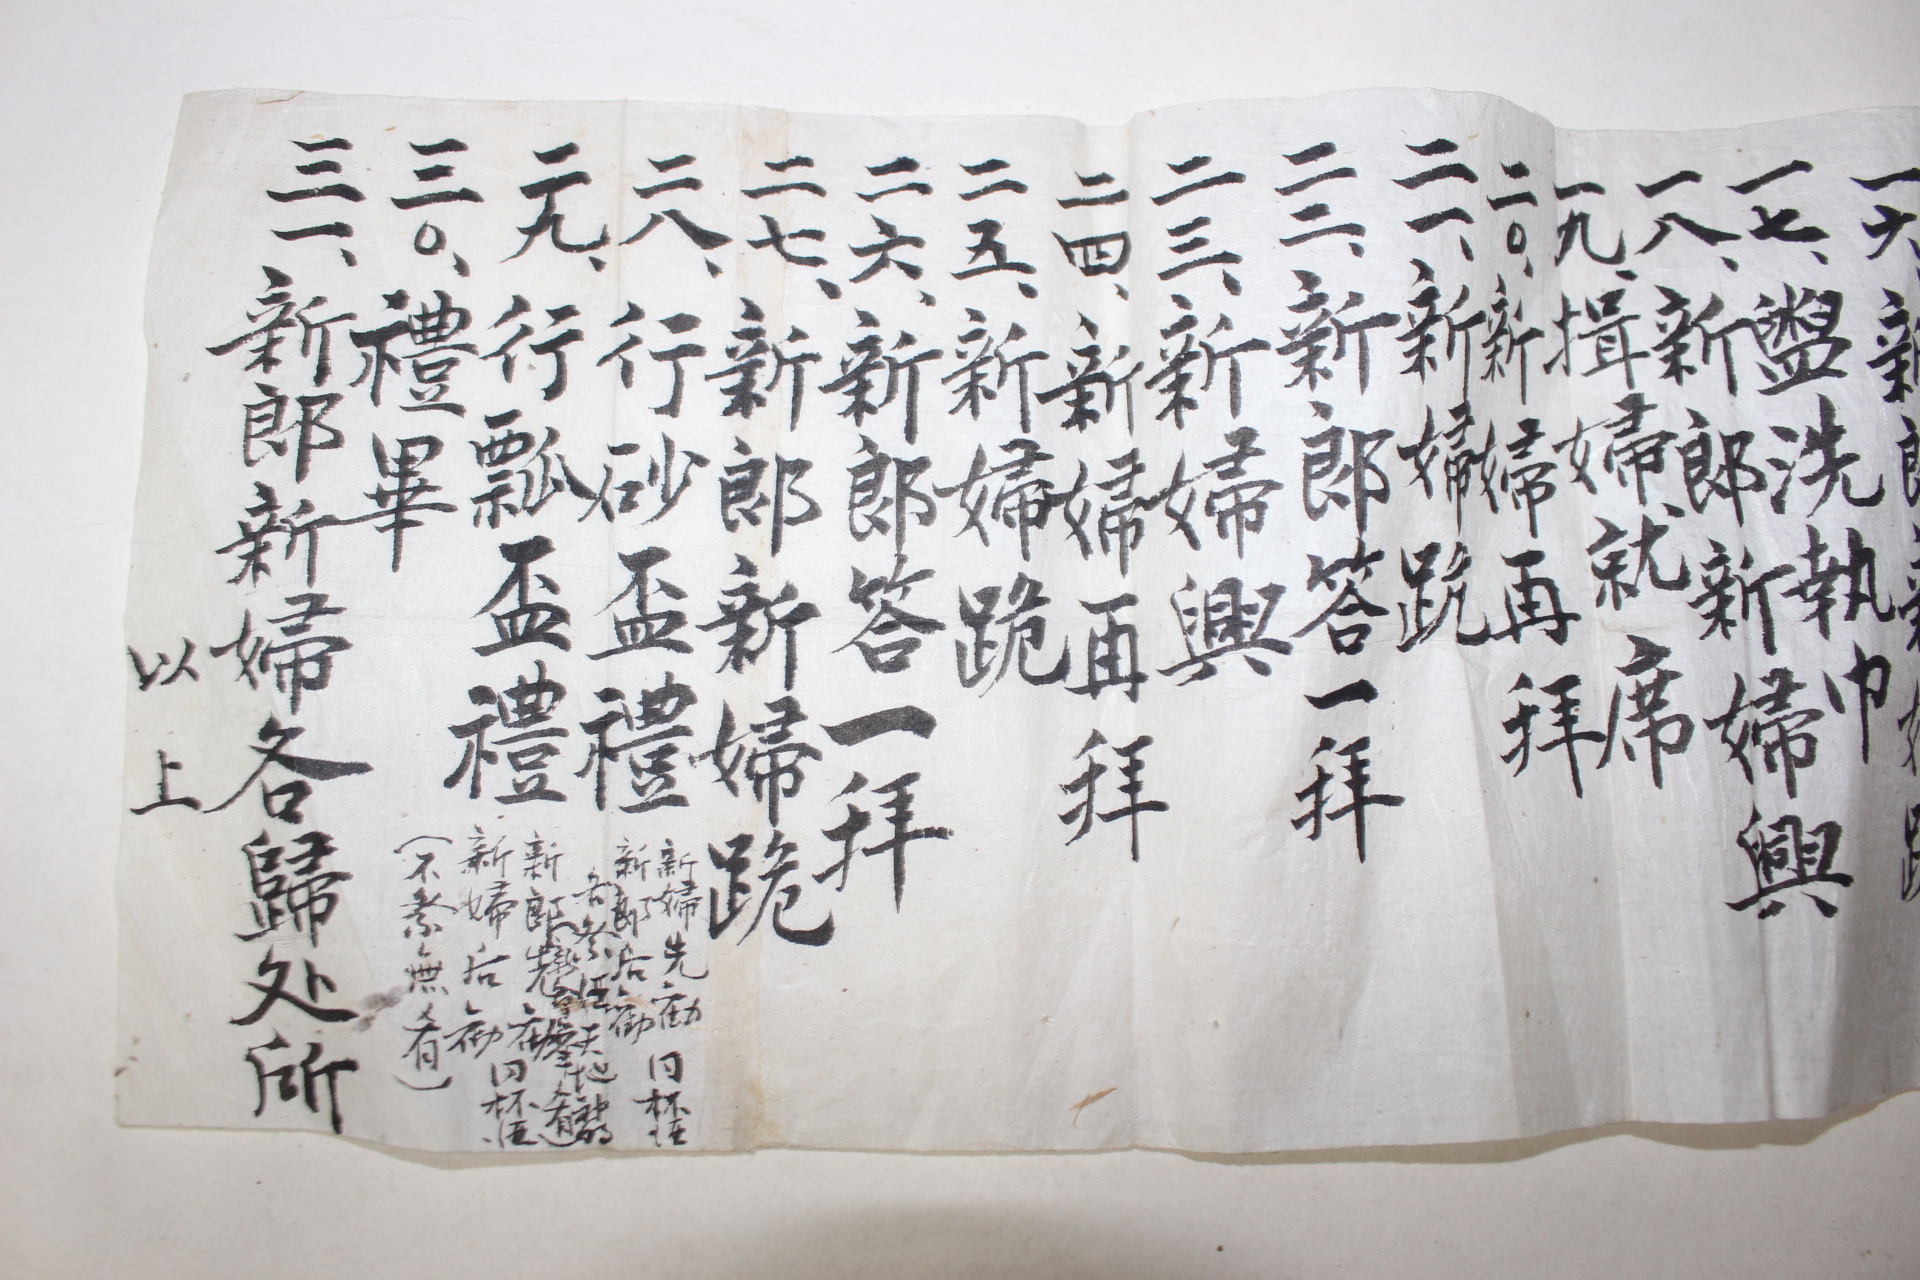 一六、新郎新婦跪
一七、盥洗執巾
一八、新郎新婦興
一九、揖婦就席
二〇、新婦再拜
二一、新婦跪
二二、新郎答一拜
二三、新婦興
二四、新婦再拜
二五、新婦跪
二六、新郎答一拜
二七、新郎新婦跪
二八、行砂盃禮
新婦先勸
新郎后勸
同杯
二九、行瓢盃禮
新郎先
新婦后勸
同杯
(不祭無肴)
三〇、禮畢
三一、新郎新婦各歸处所
以上